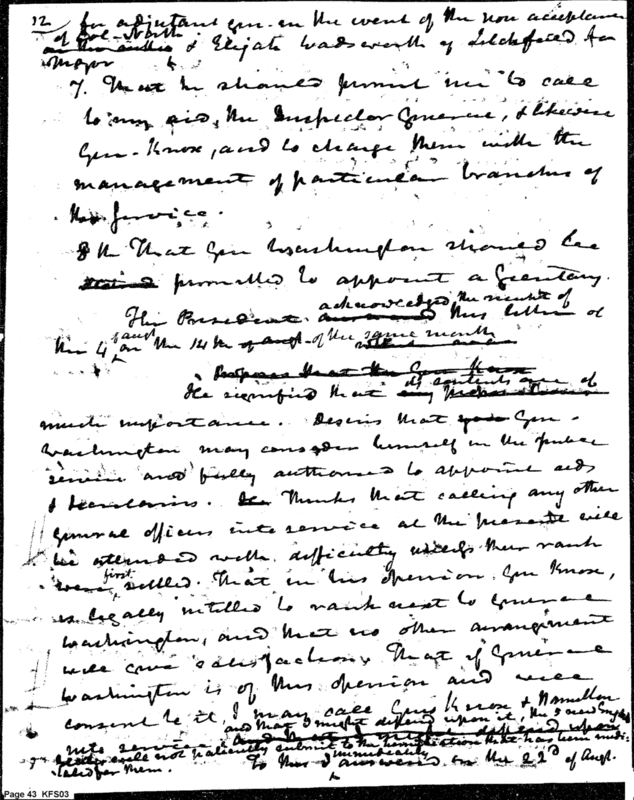 12 for adjutant Gen. in the event of the non acceptance
of Col. North
& Elijah Wadsworth of Litchfield for
Major
7. That he should permit me to call
to my aid, the Inspector General, & likewise
Gen. Knox, and to charge them with the
management of particular branches of
the Service.
8th That Gen Washington should be
permitted to appoint a Secretary.
acknowledged the receipt of
The President this letter of
the 4 augt on the 14th of the same month
He signified that its contents are of
much importance. Desires that Gen.
Washington may consider himself in the public
service and fully authorised to appoint aids
& Secretaries. Thinks that calling any other
General officers into service at the present will
be attended with difficulty unless their rank
were first settled. That in his opinion, Gen Knox,
is legally intitled to rank next to General
Washington, and that no other arrangement
will give satisfaction. That if General
Washington is of this opinion and will
consent to it, I may call Gen Knox & Hamilton
into service and that I might depend upon it, the 5 new England
States will not patiently submit to the humiliation that has been medi-
tated for them. To this I immediately answered on the 22d of Augt.
Page 43 KFS03